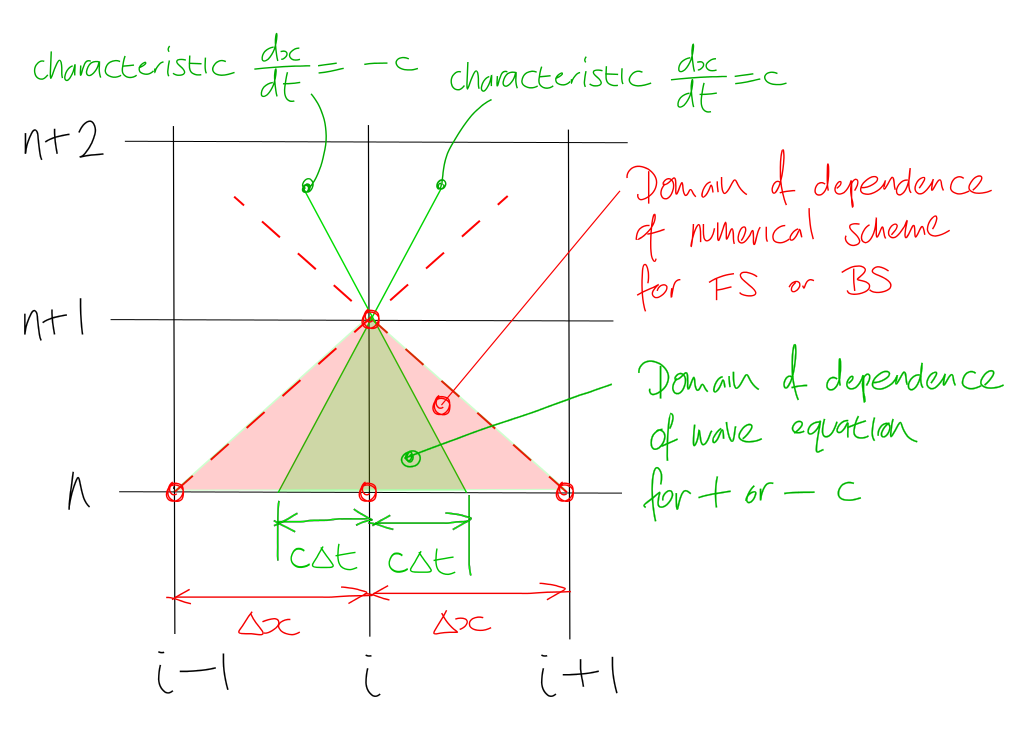 characteristic dx/dt = -c
characteristic dx/dt = c
n+2
Domain of dependence
of numerical scheme
for FS or BS
n+1
Domain of dependence
of wave equation
for + or - c
n
cΔt cΔt
Δx Δx
i-1 i i+1